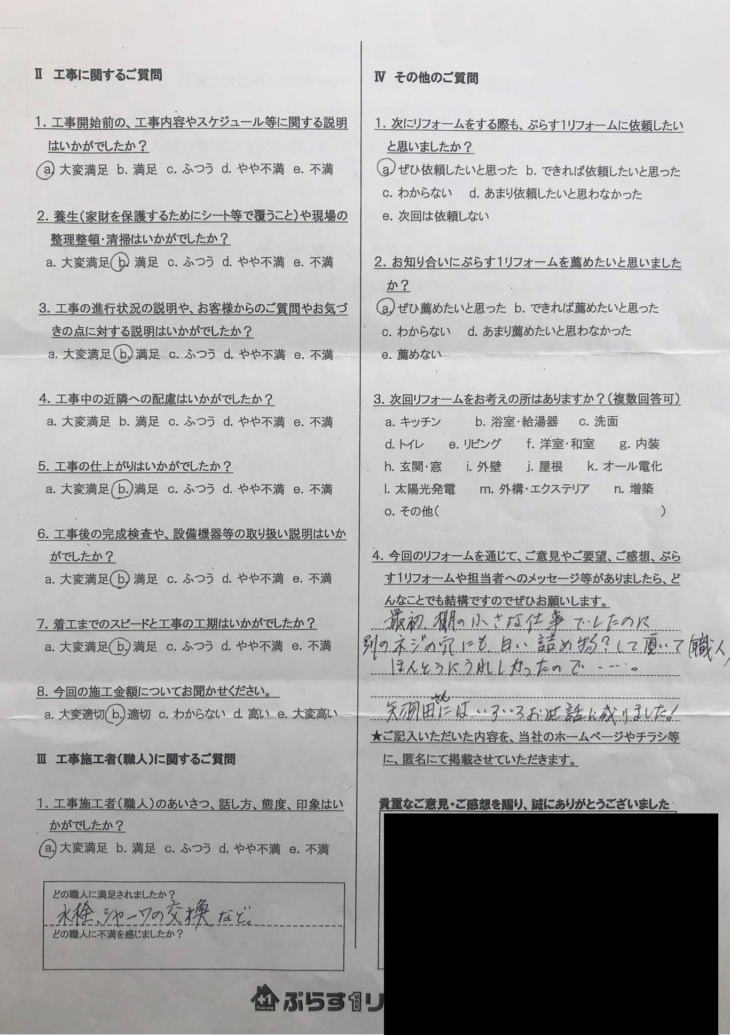 Ⅱ 工事に関するご質問
1. 工事開始前の、工事内容やスケジュール等に関する説明
はいかがでしたか?
a. 大変満足 b. 満足 c. ふつう d. やや不満 e. 不満
2. 養生(家財を保護するためにシート等で覆うこと)や現場の
整理整頓・清掃はいかがでしたか?
a. 大変満足 b. 満足 c. ふつう d. やや不満 e. 不満
3. 工事の進行状況の説明や、お客様からのご質問やお気づ
きの点に対する説明はいかがでしたか?
a. 大変満足 b. 満足 c. ふつう d. やや不満 e. 不満
4. 工事中の近隣への配慮はいかがでしたか?
a. 大変満足 b. 満足 c. ふつう d. やや不満 e. 不満
5. 工事の仕上がりはいかがでしたか?
a. 大変満足 b. 満足 c. ふつう d. やや不満 e. 不満
6. 工事後の完成検査や、設備機器等の取り扱い説明はいか
がでしたか?
a. 大変満足 b. 満足 c. ふつう d. やや不満 e. 不満
7. 着工までのスピードと工事の工期はいかがでしたか?
a. 大変満足 b. 満足 c. ふつう d. やや不満 e. 不満
8. 今回の施工金額についてお聞かせください。
a. 大変適切 b. 適切 c. わからない d. 高い e. 大変高い
Ⅲ 工事施工者(職人)に関するご質問
1. 工事施工者(職人)のあいさつ、話し方、態度、印象はい
かがでしたか?
a. 大変満足 b. 満足 c. ふつう d. やや不満 e. 不満
どの職人に満足されましたか?
水栓、シャワの交換など。
どの職人に不満を感じましたか?
Ⅳ その他のご質問
1. 次にリフォームをする際も、ぷらす1リフォームに依頼したい
と思いましたか?
a. ぜひ依頼したいと思った b. できれば依頼したいと思った
c. わからない d. あまり依頼したいと思わなかった
e. 次回は依頼しない
2. お知り合いにぷらす1リフォームを薦めたいと思いました
か?
a. ぜひ薦めたいと思った b. できれば薦めたいと思った
c. わからない d. あまり薦めたいと思わなかった
e. 薦めない
3. 次回リフォームをお考えの所はありますか?(複数回答可)
a. キッチン b. 浴室・給湯器 c. 洗面
d. トイレ e. リビング f. 洋室・和室 g. 内装
h. 玄関・窓 i. 外壁 j. 屋根 k. オール電化
l. 太陽光発電 m. 外構・エクステリア n. 増築
o. その他( )
4. 今回のリフォームを通じて、ご意見やご要望、ご感想、ぷら
す1リフォームや担当者へのメッセージ等がありましたら、ど
んなことでも結構ですのでぜひお願いします。
最初、棚の小さな仕事でしたのに
別のネジの穴にも白い詰め物?して頂いて(職人
ほんとうにうれしかったので‥‥。
矢羽田さんにはいろいろお世話に成りました!
★ご記入いただいた内容を、当社のホームページやチラシ等
に、匿名にて掲載させていただきます。
貴重なご意見・ご感想を賜り、誠にありがとうございました
+1 ぷらす1リ